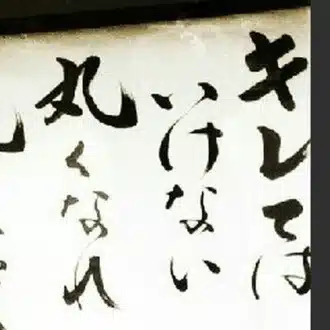 キレては
いけない
丸くなれ